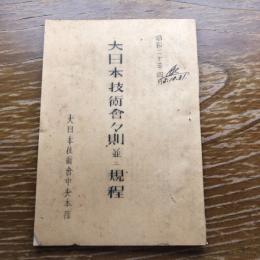 昭和二十年四月
大日本技術會々則並ニ規程
大日本技術會中央本部